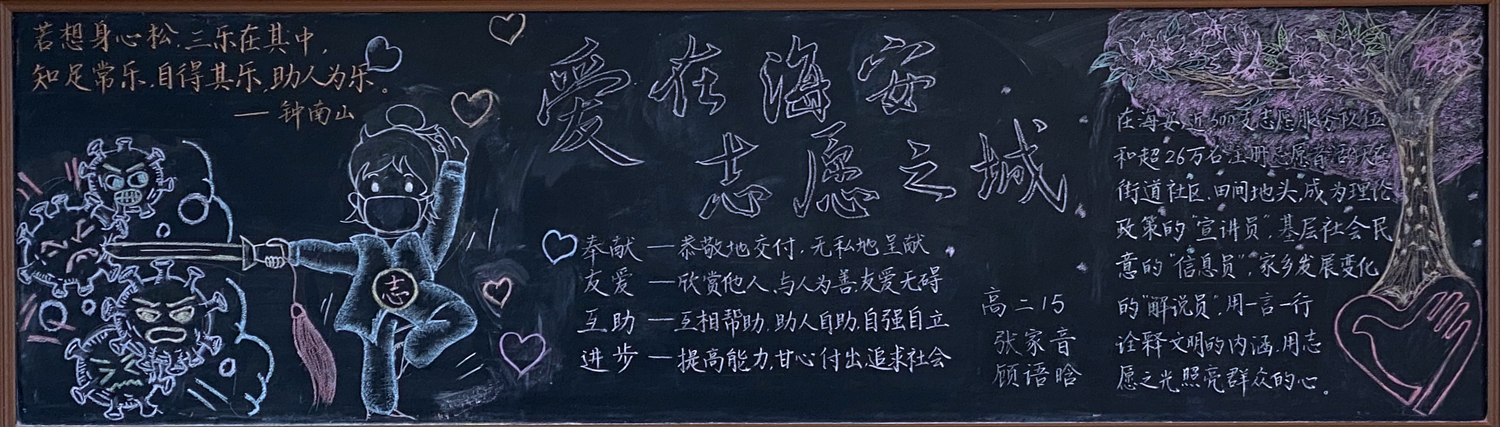 若想身心松,三乐在其中,
知足常乐,自得其乐,助人为乐。
—钟南山
志
爱在海安
志愿之城
奉献—恭敬地交付,无私地呈献
友爱—欣赏他人,与人为善,友爱无碍
互助—互相帮助,助人自助,自强自立
进步—提高能力,甘心付出,追求社会
高二15
张家音
顾语晗
在海安,近500支志愿服务队伍
和超26万名注册志愿者活跃在
街道社区,田间地头,成为理论
政策的“宣讲员”,基层社会民
意的“信息员”,家乡发展变化
的“解说员”,用一言一行
诠释文明的内涵,用志
愿之光照亮群众的心。